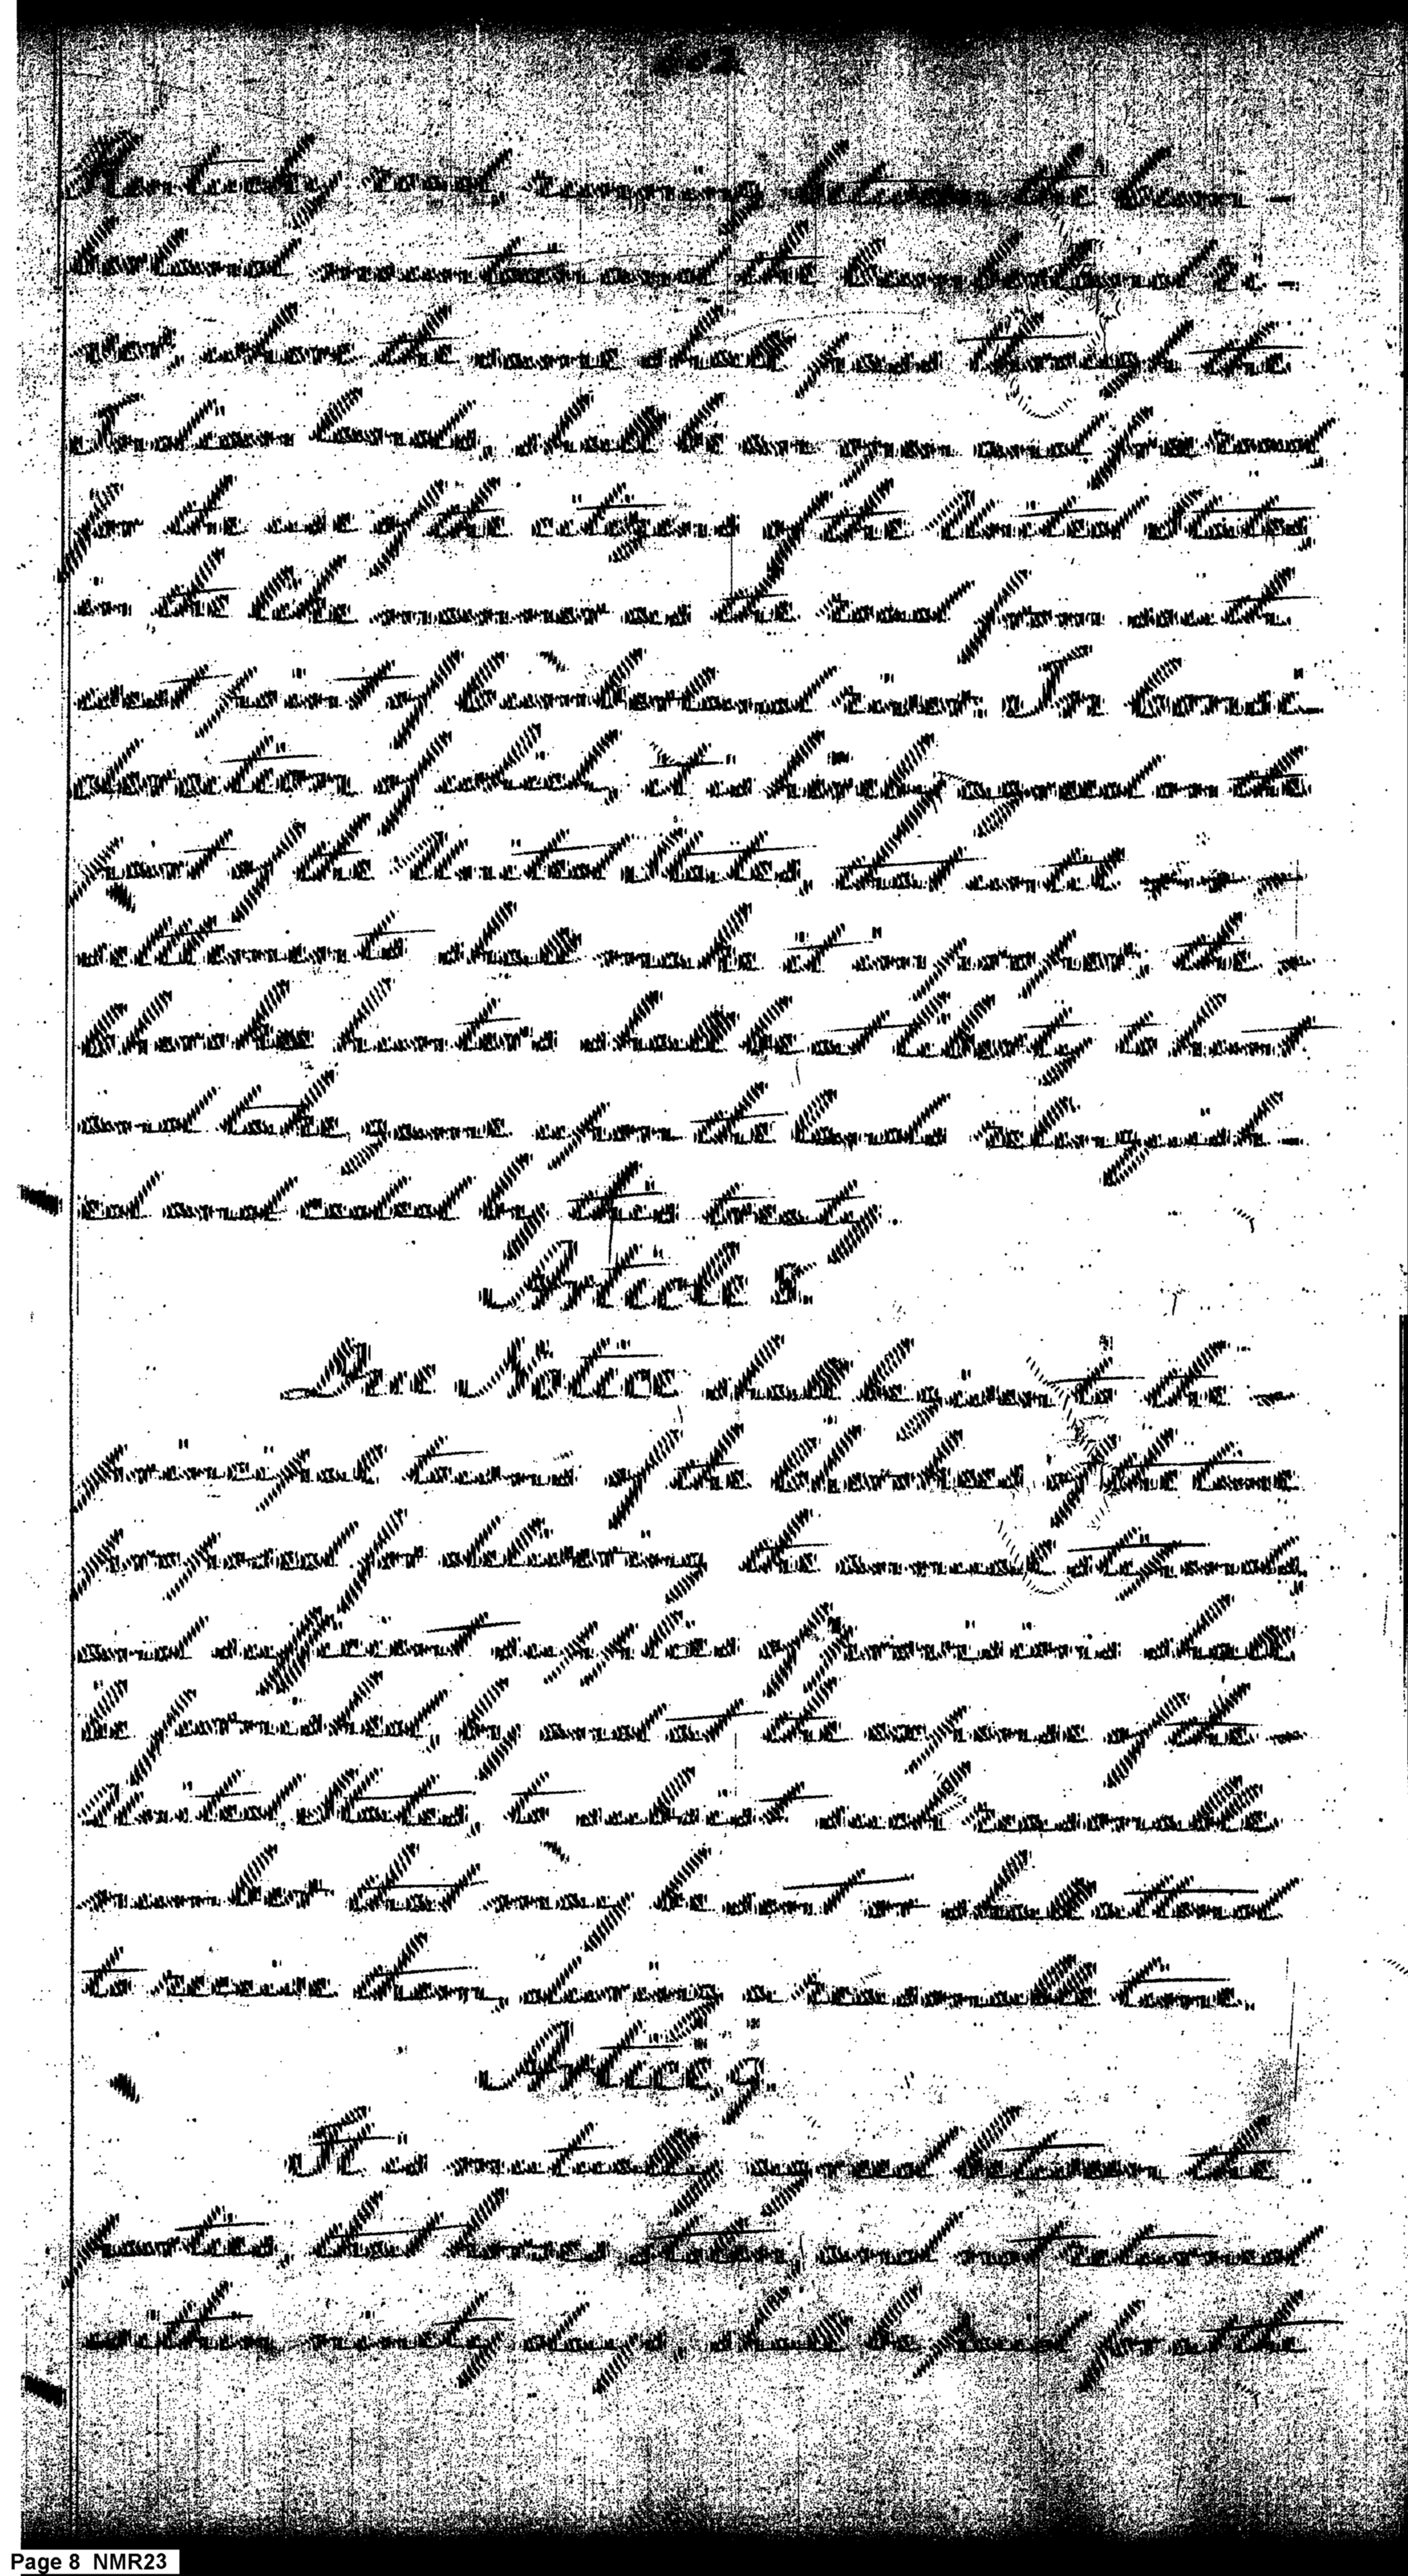 Kentucky road, running between the Cum-
berland mountain and the Cumberland ri-
ver, where the same shall pass through the
Indian lands, shall be an open and free road
for the use of the citizens of the United States
in like manner as the road from south
west point to Cumberland river. In consi-
deration of which, it is hereby agreed on the
part of the United States, that until
settlements shall make it improper, the
Cherokee hunters shall be at liberty to hunt
and take game upon the lands relinquish-
ed and ceded by this treaty.
Article 8.
Due Notice shall be given to the
principal towns of the Cherokees of the time
proposed for delivering the annual stipend,
and sufficient supplies of provisions shall
be furnished, by and at the expense of the
United States, to subsist such reasonable
number that may be sent or shall attend
to receive them, during a reasonable time.
Article 9.
It is mutually agreed between the
parties, that horses stolen, and not returned
within ninety days, shall be paid for at the
Page 8 NMR23